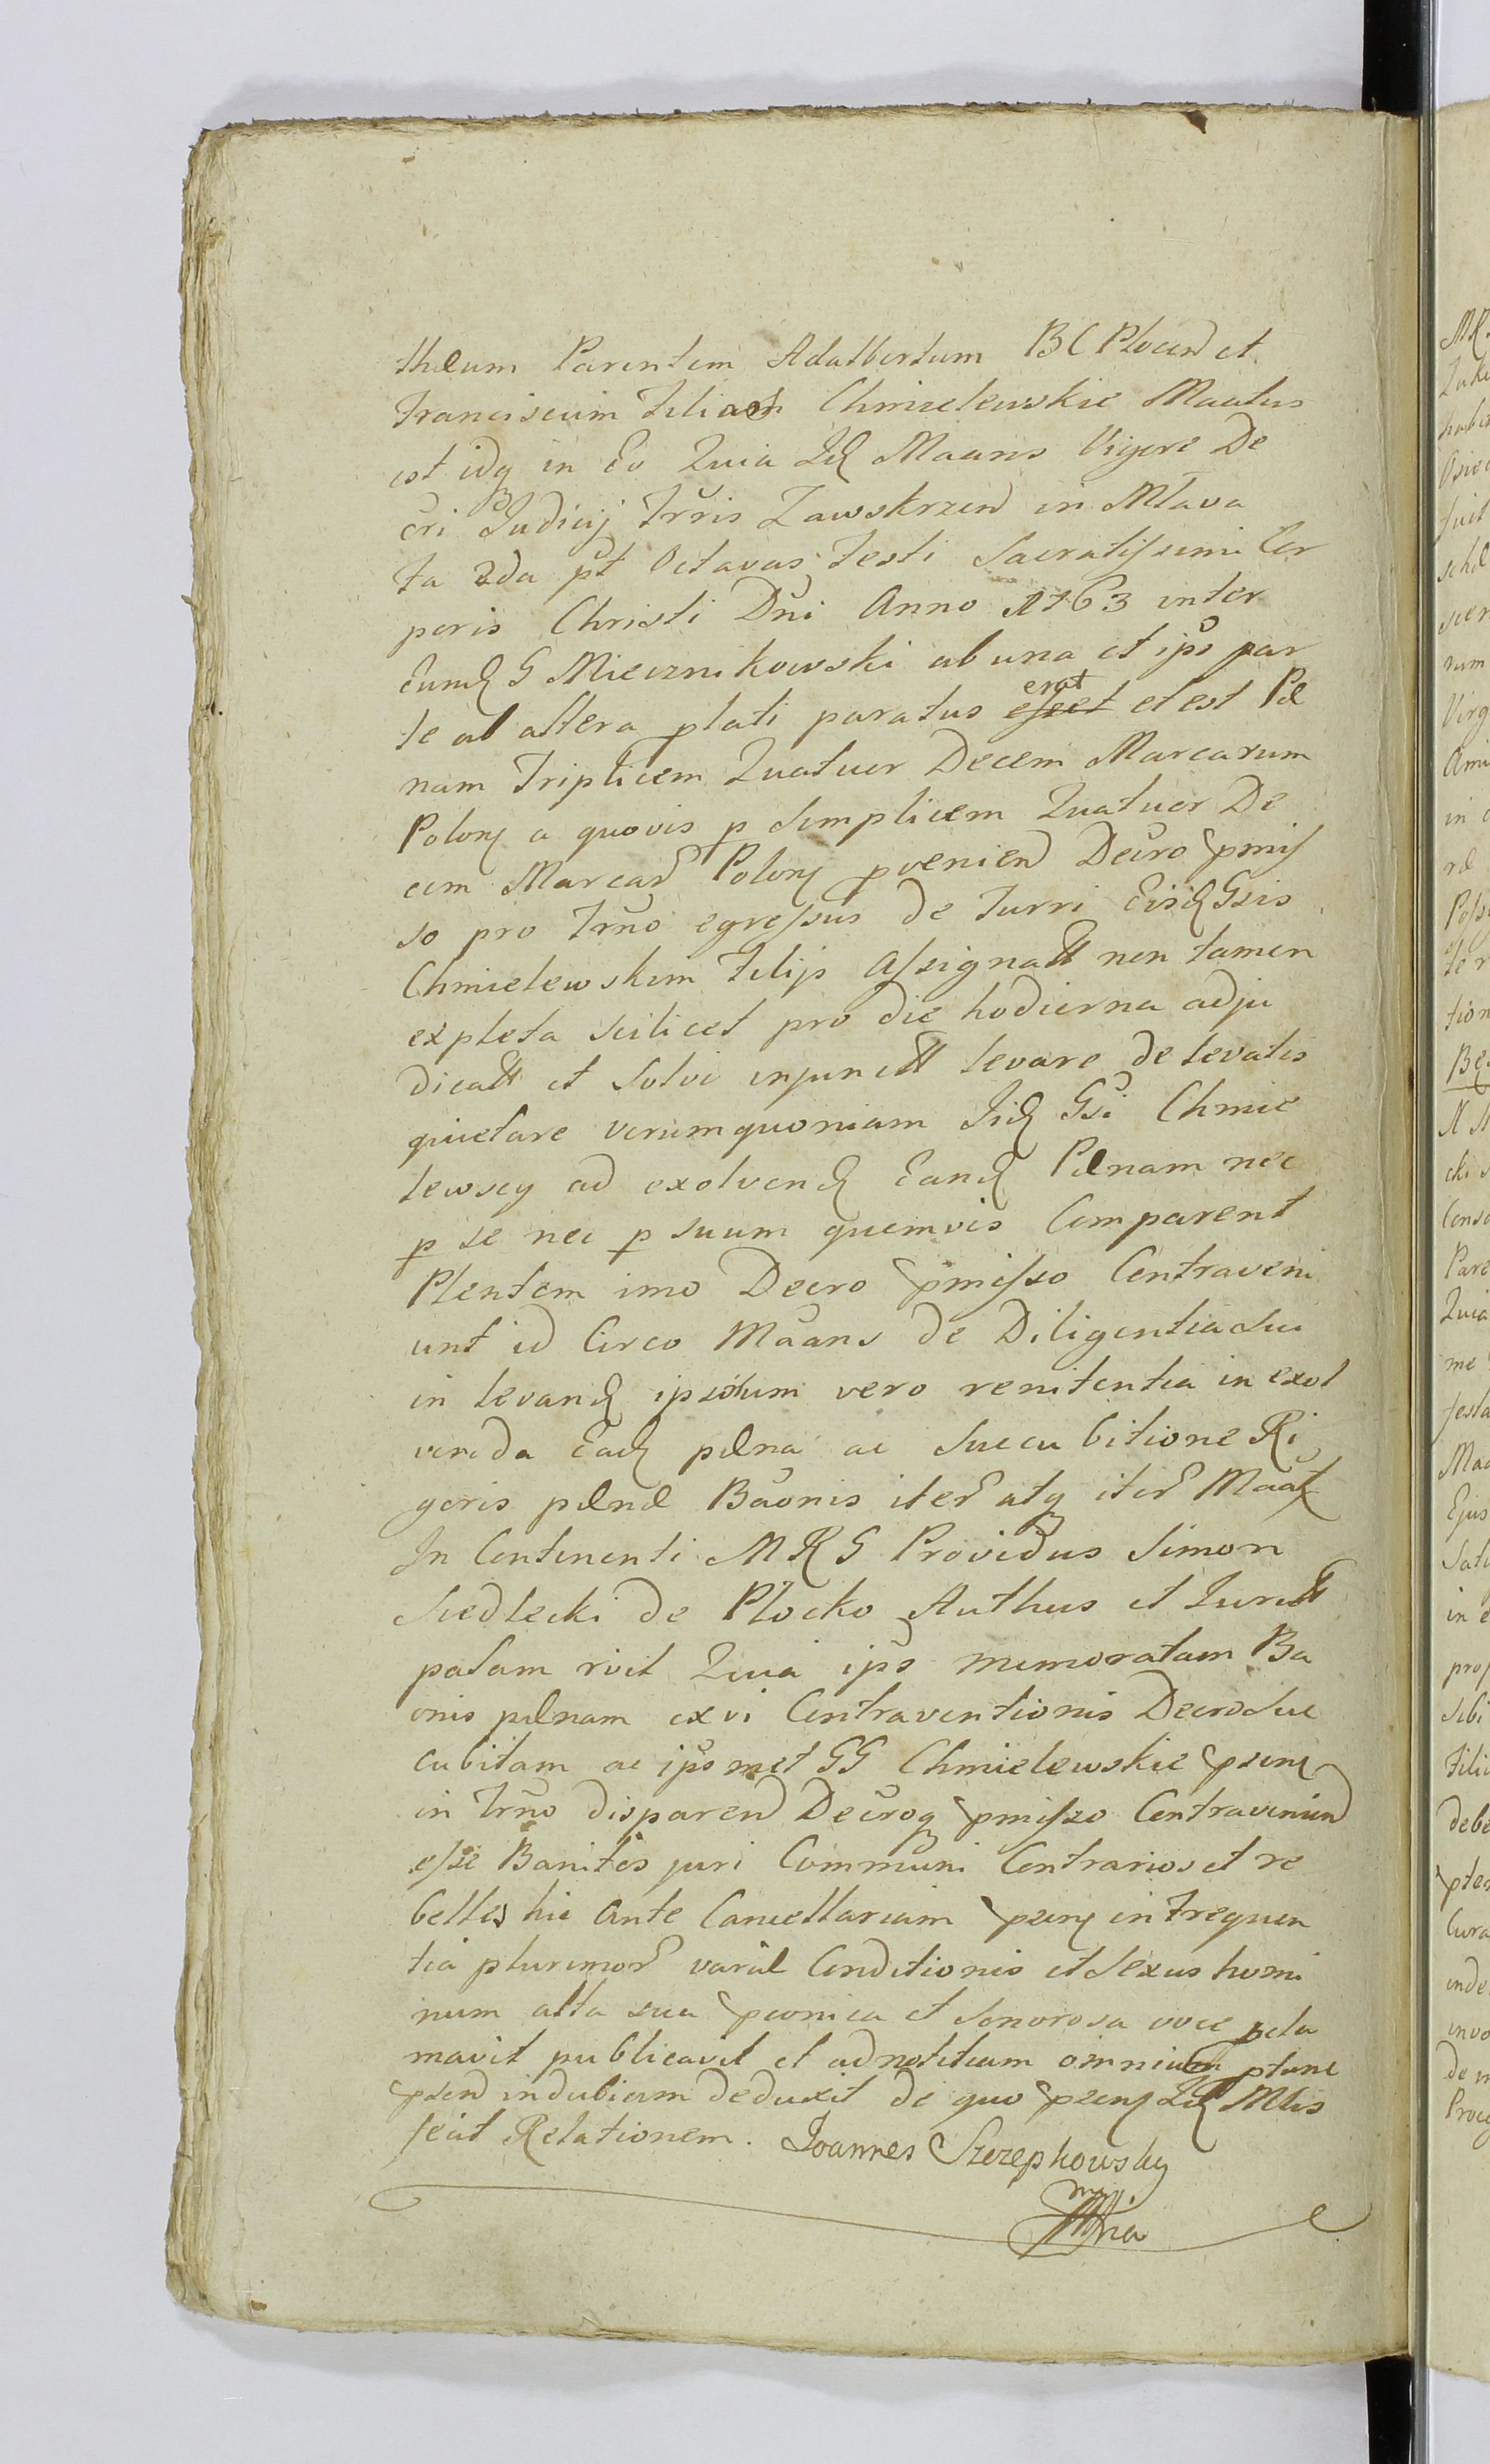 thæum Parentem Adalbertum BC Plocen et
Franciscum Filios Chmielewskie Maatus
est idq in Eo Quia Id Maans Vigore De
cri Judicij Trris Zawskrzen in Mlava
Fa 2da pt Octavas Festi Sacratissimi Cor
poris Christi Dni Anno 1763 inter
Eund G Miecznikowski ab una et ips par
te ab altera plati paratus esset erat et est Pæ
nam Triplicem Quatuor Decem Marcarum
Polon a quovis p Simplicem Quatuor De
cem Marcar Polon pvenien Decro pmis
so pro Trno egressus de Turri Eisd Gsis
Chmielewskim Filijs Assignatt non tamen
expleta scilicet pro die hodierna adju
dicatt et Solvi injunctt levare de levatis
quietare verum quoniam Iid Gsi Chmie
lewscy ad exolvend Eand Pænam nec
p se nec p suum quemvis Comparent
Plentem imo Decro pmisso Contraveni
unt id Circo Maans de Diligentia Sui
in levand ipsorum vero renitentia in exol
venda Ead pæna ac Succubitione Ri
goris pænæ Baonis iter atq iter Maat
In Continenti MRG Providus Simon
Siedlecki de Plocko Authus et Juratt
palam rvit Quia ips memoratam Ba
onis pænam ex vi Contraventionis Decro Suc
cubitam ac ipsmet GG Chmielewskie psens
in Trno disparen Decroq pmisso Contravenien
esse Banitos juri Communi Contrarios et re
belles hic Ante Cancellariam psens in Frequen
tia plurimor variæ Conditionis et Sexus homi
num alta sua pconica et Sonorosa voce pcla
mavit publicavit et ad notitiam omnium plane
psen indubiam deduxit de quo psens Id Mlis
fecit Relationem. Joannes Szczepkowsky
mp